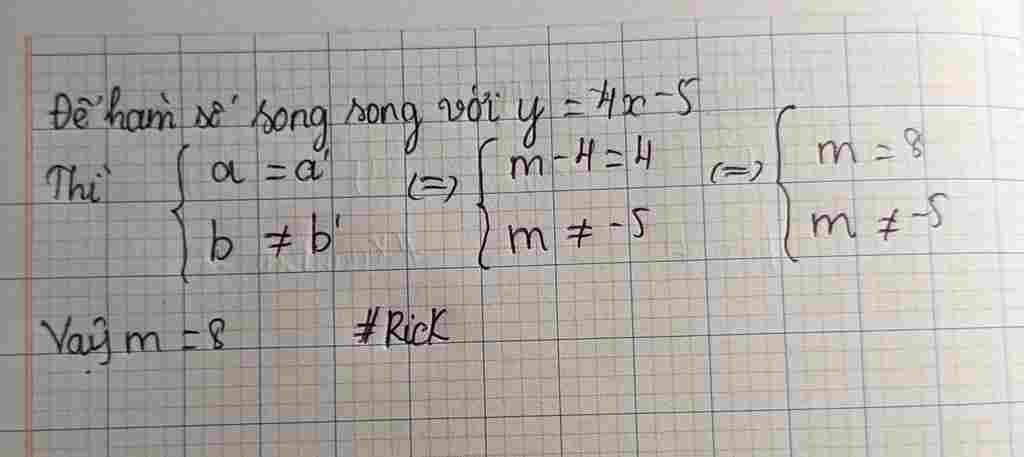 Để hàm số song song với y = 4x - 5
Thì { a = a' (=) { m - 4 = 4 (=) { m = 8
b ≠ b' m ≠ -5 m ≠ -5
Vậy m = 8 #Rick